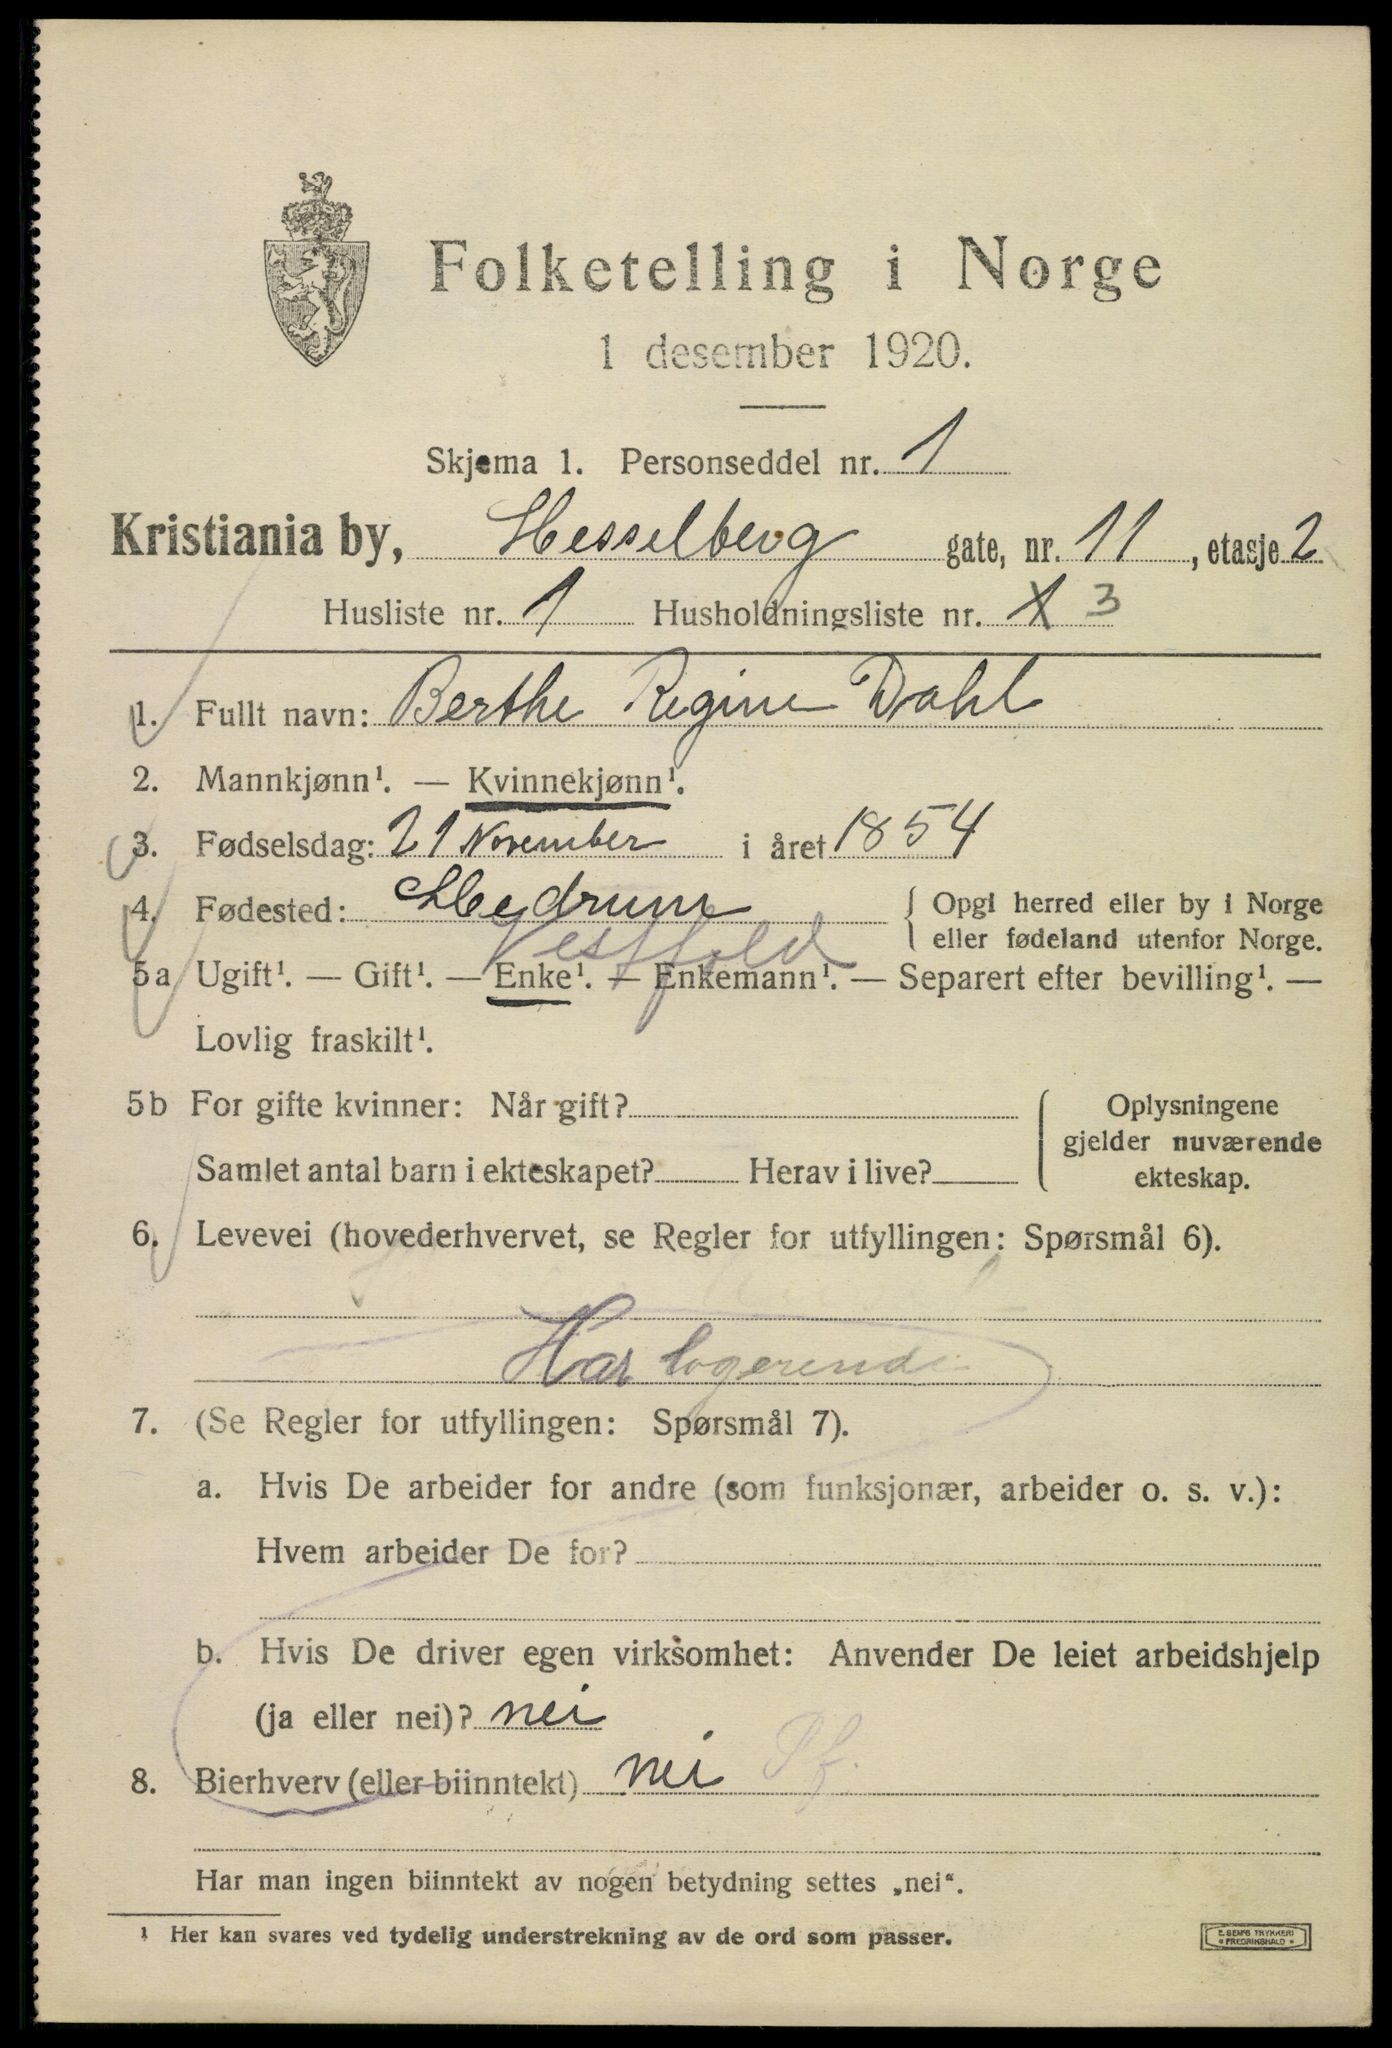 Folketelling i Norge
1 desember 1920.
Skjema 1. Personseddel nr. 1
Kristiania by, Hesselberg gate, nr. 11, etasje 2
Husliste nr. 1 Husholdningsliste nr. 1 3
1. Fullt navn: Berthe Regine Dahl
2. Mannkjønn¹. — Kvinnekjønn¹.
3. Fødselsdag: 21 November i året 1854
4. Fødested: Hedrum { Opgi herred eller by i Norge
eller fødeland utenfor Norge.
Vestfold
5a Ugift¹. — Gift¹. — Enke¹. — Enkemann¹. — Separert efter bevilling¹. —
Lovlig fraskilt¹.
5b For gifte kvinner: Når gift? { Oplysningene
gjelder nuværende
Samlet antal barn i ekteskapet? Herav i live? ekteskap.
6. Levevei (hovederhvervet, se Regler for utfyllingen: Spørsmål 6).
Har logerende
7. (Se Regler for utfyllingen: Spørsmål 7).
a. Hvis De arbeider for andre (som funksjonær, arbeider o. s. v.):
Hvem arbeider De for?
b. Hvis De driver egen virksomhet: Anvender De leiet arbeidshjelp
(ja eller nei)? nei
8. Bierhverv (eller biinntekt) nei
Har man ingen biinntekt av nogen betydning settes „nei“.
¹ Her kan svares ved tydelig understrekning av de ord som passer.
E. SEMS TRYKKERI
FREDRIKSHALD